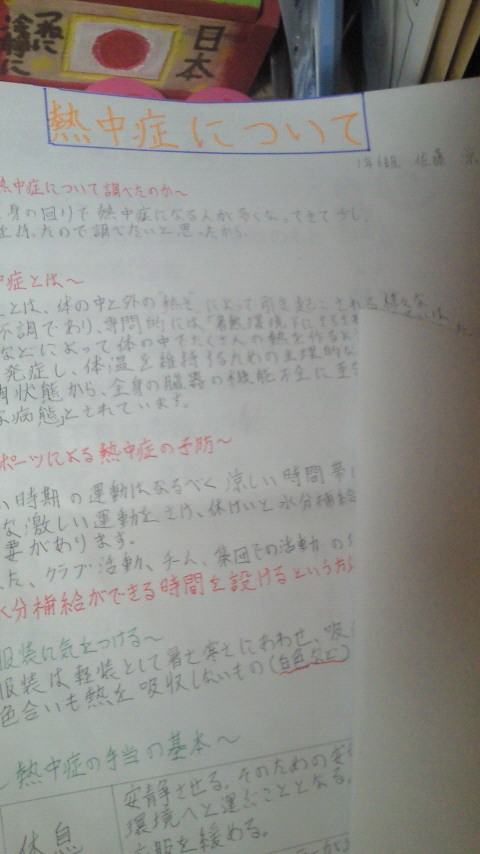 つねに
冷静に
日本
熱中症について
1年 組 佐藤
熱中症について調べたのか～
身の回りで熱中症になる人が多くなってきて少し
を持ったので調べたいと思ったから
症とは～
とは、体の中と外の"熱さ"によって引き起こされる様々な
不調であり、専門的には、「暑熱環境下にさらされ
などによって体の中でたくさんの熱を作るよ
発症し、体温を維持するための生理的な
状態から、全身の臓器の機能不全に至
病態」とされています。
ポーツによる熱中症の予防～
い時期の運動はなるべく涼しい時間帯に
な激しい運動をさけ、休けいと水分補給
要があります。
た、クラブ活動、チーム、集団での活動の
水分補給ができる時間を設けるという方
服装に気をつける～
服装は軽装として暑さ寒さにあわせ、吸
色合いも熱を吸収しないもの(白色など)
～熱中症の手当の基本～
休息
安静させる。そのための安
環境へと運ぶこととなる。
衣服を緩める。